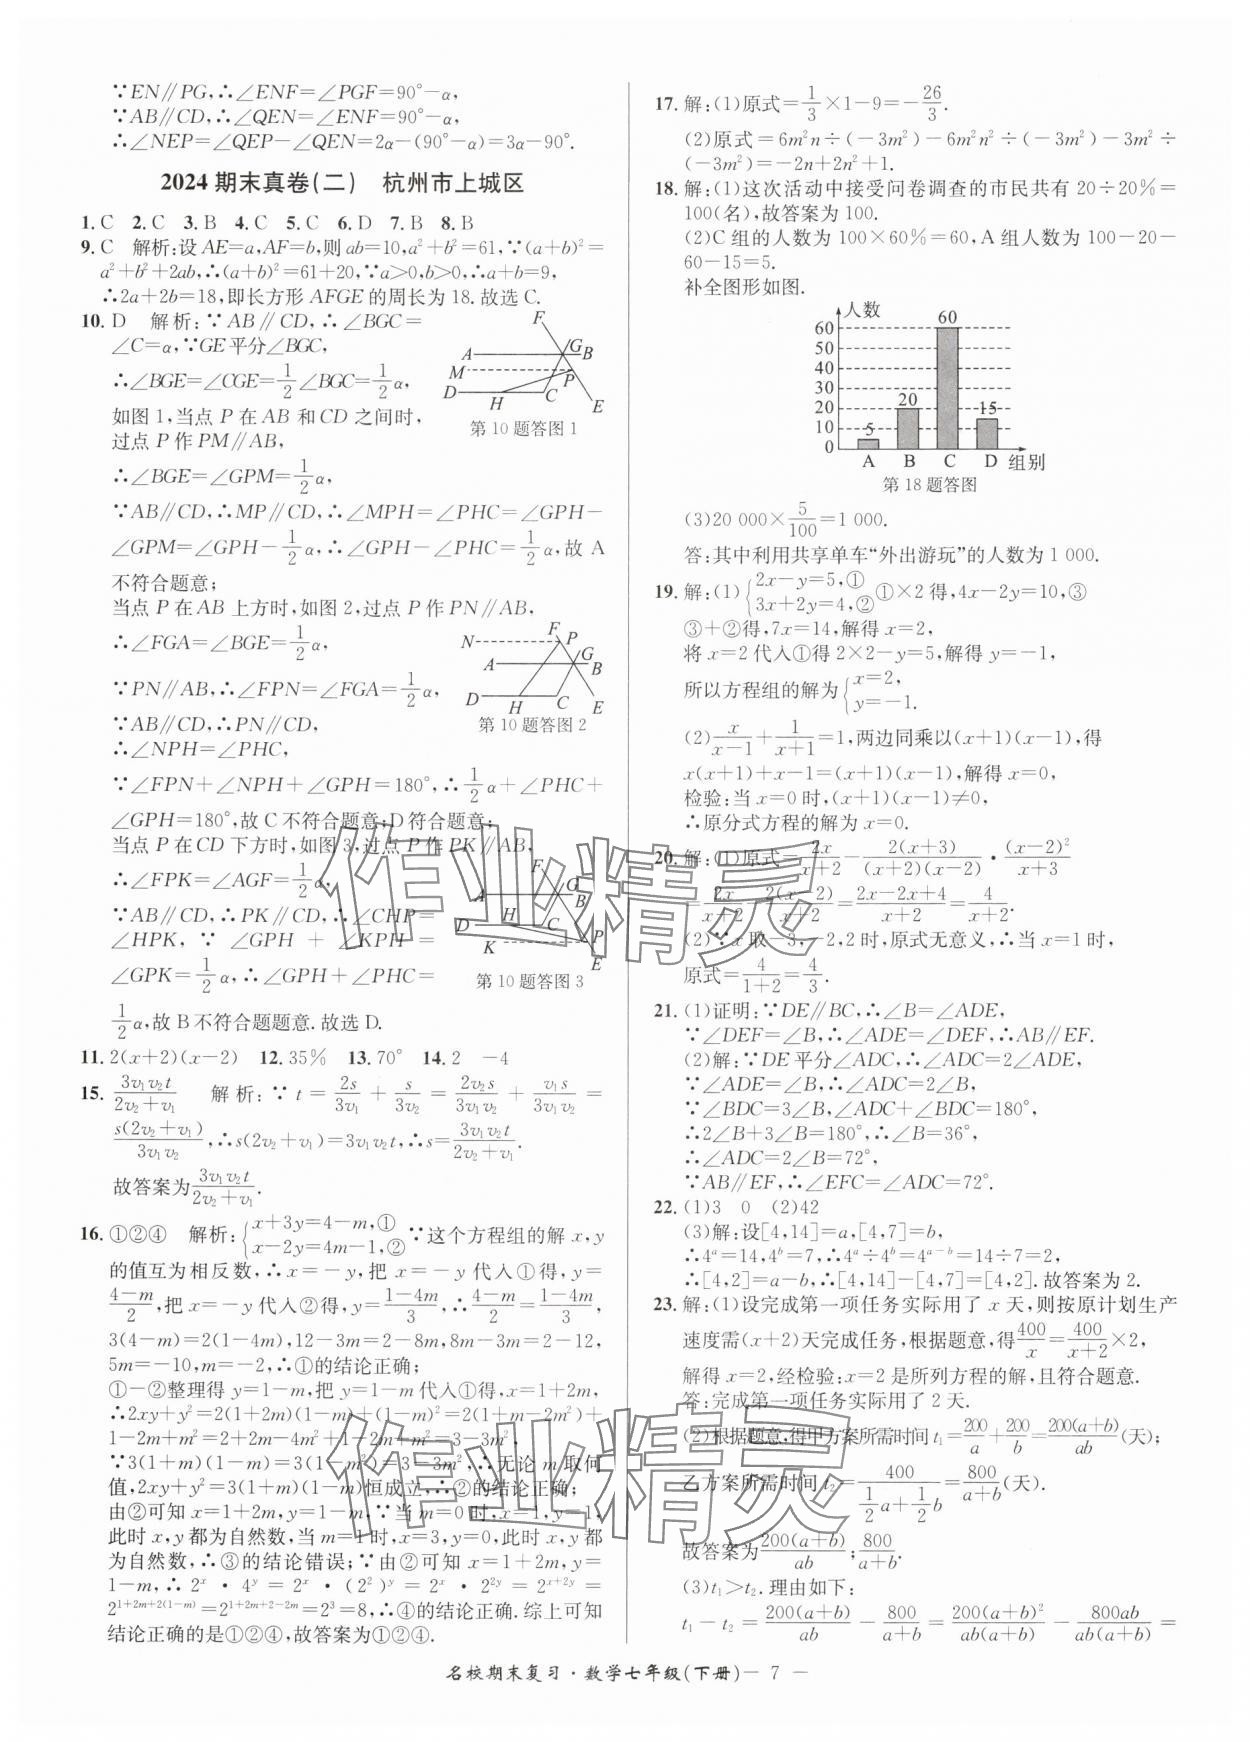 ∵EN∥PG,∴∠ENF=∠PGF=90°-α,
∵AB∥CD,∴∠QEN=∠ENF=90°-α,
∴∠NEP=∠QEP-∠QEN=2α-(90°-α)=3α-90°.
2024期末真卷(二) 杭州市上城区
1.C 2.C 3.B 4.C 5.C 6.D 7.B 8.B
9.C 解析:设AE=a,AF=b,则ab=10,a²+b²=61,∵(a+b)²=
a²+b²+2ab,∴(a+b)²=61+20,∵a>0,b>0,∴a+b=9,
∴2a+2b=18,即长方形AFGE的周长为18.故选C.
10.D 解析:∵AB∥CD,∴∠BGC=
∠C=α,∵GE平分∠BGC,
∴∠BGE=∠CGE=1/2∠BGC=1/2α,
如图1,当点P在AB和CD之间时,
过点P作PM∥AB,
F
A G B
M P
D H C E
第10题答图1
∴∠BGE=∠GPM=1/2α,
∵AB∥CD,∴MP∥CD,∴∠MPH=∠PHC=∠GPH-
∠GPM=∠GPH-1/2α,∴∠GPH-∠PHC=1/2α,故A
不符合题意;
当点P在AB上方时,如图2,过点P作PN∥AB,
∴∠FGA=∠BGE=1/2α,
∵PN∥AB,∴∠FPN=∠FGA=1/2α,
∵AB∥CD,∴PN∥CD,
∴∠NPH=∠PHC,
F
N P
A G B
D H C E
第10题答图2
∵∠FPN+∠NPH+∠GPH=180°,∴1/2α+∠PHC+
∠GPH=180°,故C不符合题意;D符合题意;
当点P在CD下方时,如图3,过点P作PK∥AB,
∴∠FPK=∠AGF=1/2α,
∵AB∥CD,∴PK∥CD,∴∠CHP=
∠HPK,∵∠GPH+∠KPH=
∠GPK=1/2α,∴∠GPH+∠PHC=
F
A G B
D H C
K P
E
第10题答图3
1/2α,故B不符合题题意.故选D.
11.2(x+2)(x-2) 12.35% 13.70° 14.2 -4
15.3v₁v₂t/(2v₂+v₁) 解析:∵t=2s/3v₁+s/3v₂=2v₂s/3v₁v₂+v₁s/3v₁v₂=
s(2v₂+v₁)/3v₁v₂,∴s(2v₂+v₁)=3v₁v₂t,∴s=3v₁v₂t/(2v₂+v₁).
故答案为3v₁v₂t/(2v₂+v₁).
16.①②④ 解析:{x+3y=4-m,① x-2y=4m-1,②∵这个方程组的解x,y
的值互为相反数,∴x=-y,把x=-y代入①得,y=
(4-m)/2,把x=-y代入②得,y=(1-4m)/3,∴(4-m)/2=(1-4m)/3,
3(4-m)=2(1-4m),12-3m=2-8m,8m-3m=2-12,
5m=-10,m=-2,∴①的结论正确;
①-②整理得y=1-m,把y=1-m代入①得,x=1+2m,
∴2xy+y²=2(1+2m)(1-m)+(1-m)²=2(1+m-2m²)+
1-2m+m²=2+2m-4m²+1-2m+m²=3-3m²,
∵3(1+m)(1-m)=3(1-m²)=3-3m²,∴无论m取何
值,2xy+y²=3(1+m)(1-m)恒成立,∴②的结论正确;
由②可知x=1+2m,y=1-m,∵当m=0时,x=1,y=1,
此时x,y都为自然数,当m=1时,x=3,y=0,此时x,y都
为自然数,∴③的结论错误;∵由②可知x=1+2m,y=
1-m,∴2ˣ·4ʸ=2ˣ·(2²)ʸ=2ˣ·2²ʸ=2ˣ⁺²ʸ=
2^(1+2m+2(1-m))=2^(1+2m+2-2m)=2³=8,∴④的结论正确.综上可知
结论正确的是①②④,故答案为①②④.
17.解:(1)原式=1/3×1-9=-26/3.
(2)原式=6m²n÷(-3m²)-6m²n²÷(-3m²)-3m²÷
(-3m²)=-2n+2n²+1.
18.解:(1)这次活动中接受问卷调查的市民共有20÷20%=
100(名),故答案为100.
(2)C组的人数为100×60%=60,A组人数为100-20-
60-15=5.
补全图形如图.
人数
60
50
40
30
20
10
0
5 20 60 15
A B C D 组别
第18题答图
(3)20 000×5/100=1 000.
答:其中利用共享单车“外出游玩”的人数为1 000.
19.解:(1){2x-y=5,① 3x+2y=4,②①×2得,4x-2y=10,③
③+②得,7x=14,解得x=2,
将x=2代入①得2×2-y=5,解得y=-1,
所以方程组的解为{x=2, y=-1.
(2)x/(x-1)+1/(x+1)=1,两边同乘以(x+1)(x-1),得
x(x+1)+x-1=(x+1)(x-1),解得x=0,
检验:当x=0时,(x+1)(x-1)≠0,
∴原分式方程的解为x=0.
20.解:(1)原式=2x/(x+2)-2(x+3)/(x+2)(x-2)·(x-2)²/(x+3)
=2x/(x+2)-2(x-2)/(x+2)=(2x-2x+4)/(x+2)=4/(x+2).
(2)∵x取-3,-2,2时,原式无意义,∴当x=1时,
原式=4/(1+2)=4/3.
21.(1)证明:∵DE∥BC,∴∠B=∠ADE,
∵∠DEF=∠B,∴∠ADE=∠DEF,∴AB∥EF.
(2)解:∵DE平分∠ADC,∴∠ADC=2∠ADE,
∵∠ADE=∠B,∴∠ADC=2∠B,
∵∠BDC=3∠B,∠ADC+∠BDC=180°,
∴2∠B+3∠B=180°,∴∠B=36°,
∴∠ADC=2∠B=72°,
∵AB∥EF,∴∠EFC=∠ADC=72°.
22.(1)3 0 (2)42
(3)解:设[4,14]=a,[4,7]=b,
∴4ᵃ=14,4ᵇ=7,∴4ᵃ÷4ᵇ=4ᵃ⁻ᵇ=14÷7=2,
∴[4,2]=a-b,∴[4,14]-[4,7]=[4,2].故答案为2.
23.解:(1)设完成第一项任务实际用了x天,则按原计划生产
速度需(x+2)天完成任务,根据题意,得400/x=400/(x+2)×2,
解得x=2,经检验:x=2是所列方程的解,且符合题意.
答:完成第一项任务实际用了2天.
(2)根据题意,得甲方案所需时间t₁=200/a+200/b=200(a+b)/ab(天);
乙方案所需时间t₂=400/(1/2a+1/2b)=800/(a+b)(天).
故答案为200(a+b)/ab;800/(a+b).
(3)t₁>t₂.理由如下:
t₁-t₂=200(a+b)/ab-800/(a+b)=200(a+b)²/ab(a+b)-800ab/ab(a+b)=
作业精灵
作业精灵
名校期末复习·数学七年级(下册)— 7 —